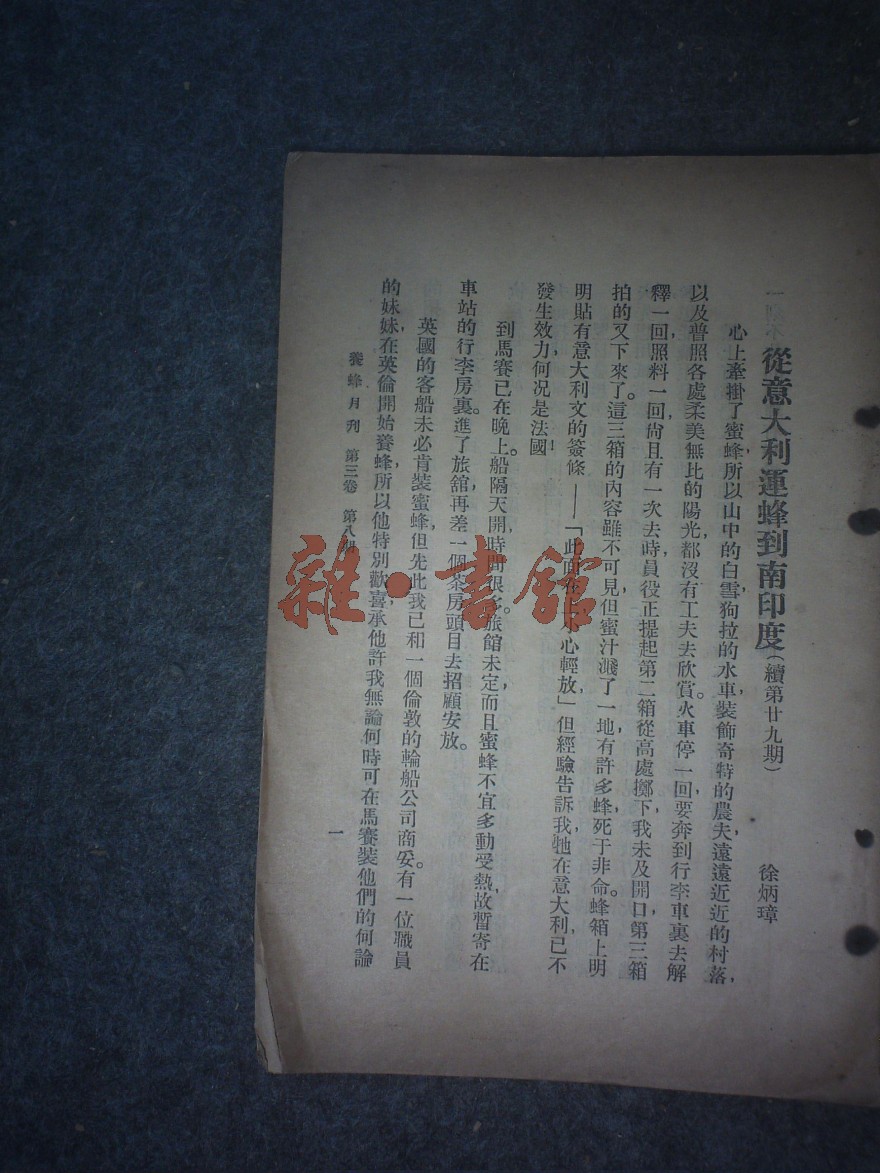 從意大利運蜂到南印度(續第廿九期)
徐炳璋
心上牽掛了蜜蜂,所以山中的白雪,狗拉的水車,裝飾奇特的農夫,遠遠近近的村落,
以及普照各處柔美無比的陽光,都沒有工夫去欣賞。火車停一回,要奔到行李車裏去解
釋一回,照料一回,尙且有一次去時,員役正提起第二箱從高處擲下,我未及開口,第三箱
拍的又下來了。這三箱的內容雖不可見,但蜜汁濺了一地,有許多蜂死于非命。蜂箱上明
明貼有意大利文的簽條——「此面在上,小心輕放,」但經驗告訴我,牠在意大利,已不
發生效力,何况是法國!
到馬賽已在晚上。船隔天開,時間很多。旅館未定,而且蜜蜂不宜多動受熱,故暫寄在
車站的行李房裏。進了旅舘,再差一個茶房頭目去招顧安放。
英國的客船未必肯裝蜜蜂,但先此我已和一個倫敦的輪船公司商妥。有一位職員
的妹妹,在英倫開始養蜂,所以他特別歡喜承他許我無論何時可在馬賽裝他們的何論
養蜂月刊 第三卷 第八期
一
雜·書館